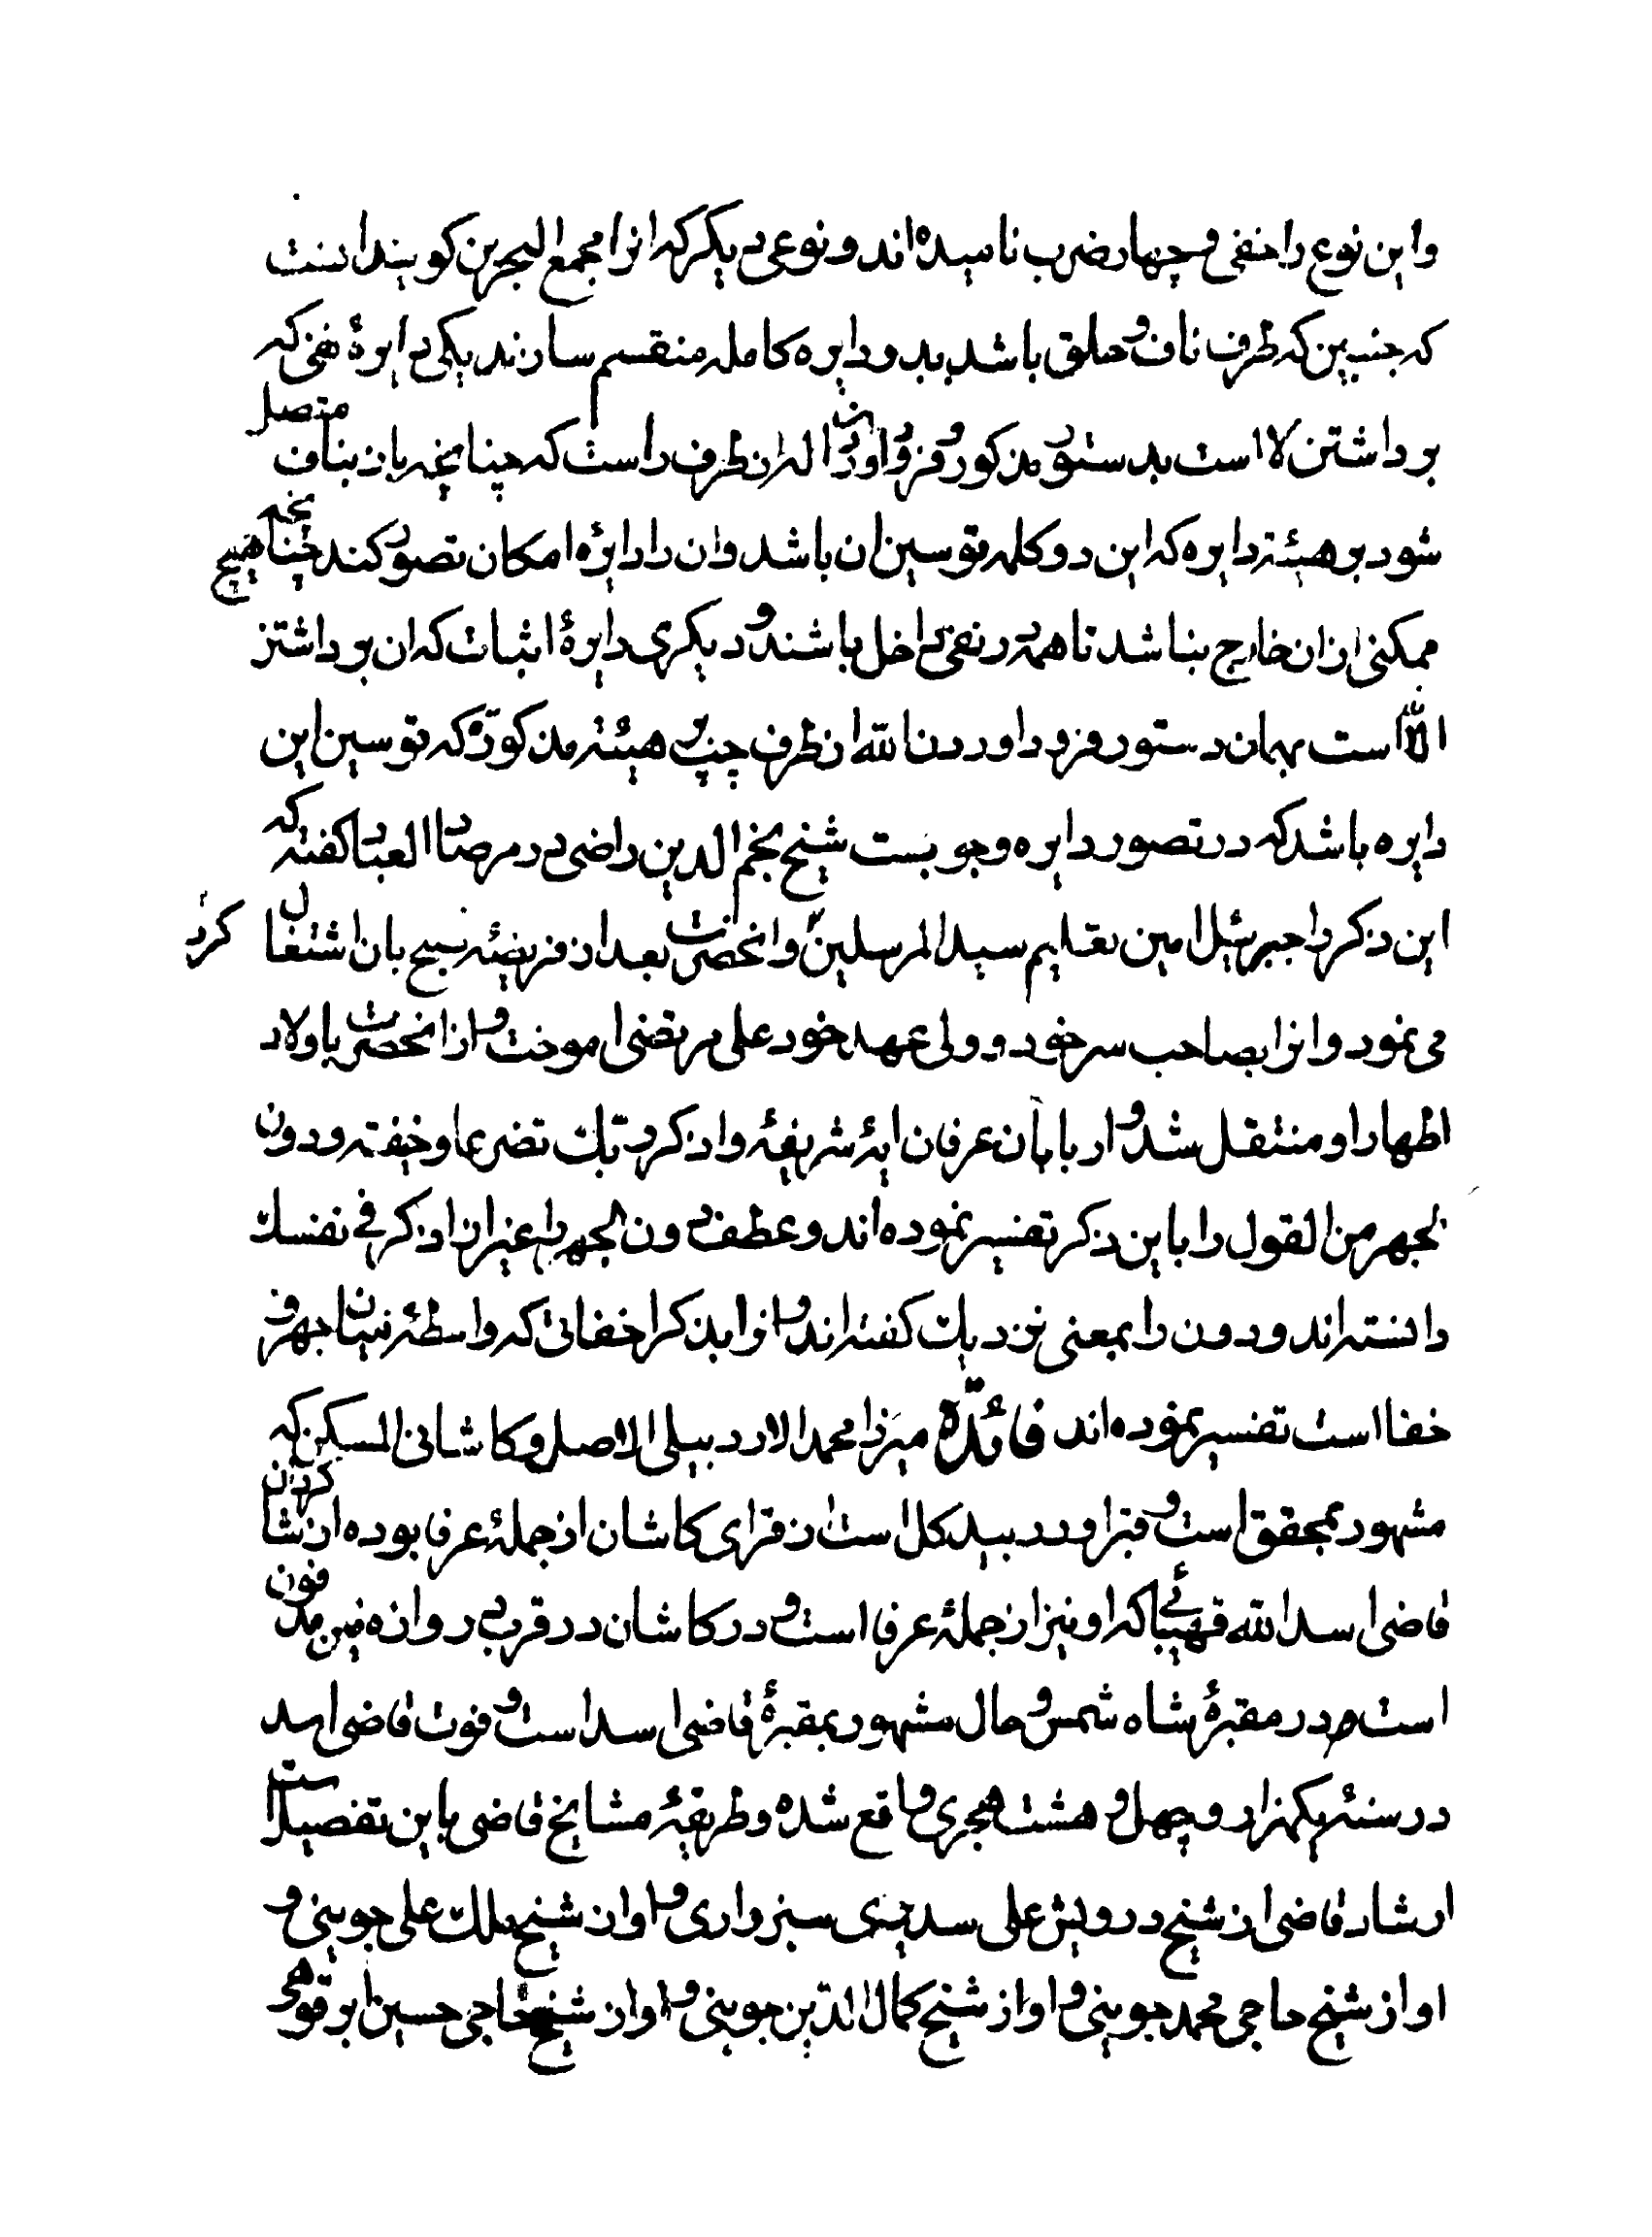 واین نوع را خفی و چهار ضرب نامیده اند و نوعی دیگر که انرا مجمع البحرین کویند انست
که جنبین که طرف ناف و حلق باشد بدو دایره کامله منقسم سازند یکی دایرهٔ نفی که
برداشتن لا است بدستور مذکور و فرود اوردن اله از نطرف راست که چنانچه بان بناف متصل
شود بر هیئة دایره که این دو کلمه قوسین ان باشد وان را دایرهٔ امکان تصور کند چنانچه هیچ
ممکنی ازان خارج نباشد تا همه در نفی داخل باشند و دیکری دایرهٔ اثبات که ان برداشتن
الا است بهمان دستور و فرود اوردن الله از نطرف چپ بر هیئة مذکوره که قوسین این
دایره باشد که در تصور دایره وجوبست شیخ نجم الدین راضی در مرصاد العباد کفته که
این ذکر را جبرئیل امین تعلیم سید المرسلین و انحضرت بعد از فریضهٔ صبح بان اشتغال کرد
می نمود وانرا بصاحب سر خود و ولی عهد خود علی مرتضی اموخت و از انحضرت باولاد
اطهار او منتقل شد و اربابان عرفان ایهٔ شریفهٔ واذکر ربک تضرعا وخیفة ودون
الجهر من القول را باین ذکر تفسیر نموده اند وعطف دون الجهر را غیر از واذکر فی نفسک
دانسته اند ودون را بمعنی نزدیک کفته اند و انرا بذکر اخفاتی که واسطهٔ میان جهر و
خفا است تفسیر نموده اند فائدة میرزا محمد الاردبیلی الاصل و کاشانی المسکن که
مشهور بمحقق است و قبر او در بیدکل است از قرای کاشان از جملهٔ عرفا بوده از شاکردان
قاضی اسد الله قهپائی که او نیز از جملهٔ عرفا است و در کاشان در قرب دروازه فین مدفون
است در مقبرهٔ شاه شمس و حال مشهور بمقبرهٔ قاضی اسد است و فوت قاضی اسد
در سنهٔ یکهزار و چهل و هشت هجری واقع شده وطریقهٔ مشایخ قاضی باین تفصیل است
ارشاد قاضی از شیخ درویش علی سدیری سبزواری و او از شیخ ملک علی جوینی و
او از شیخ حاجی محمد جوینی و او از شیخ کمال الدین جوینی و او از شیخ حاجی حسین ابرقوهی